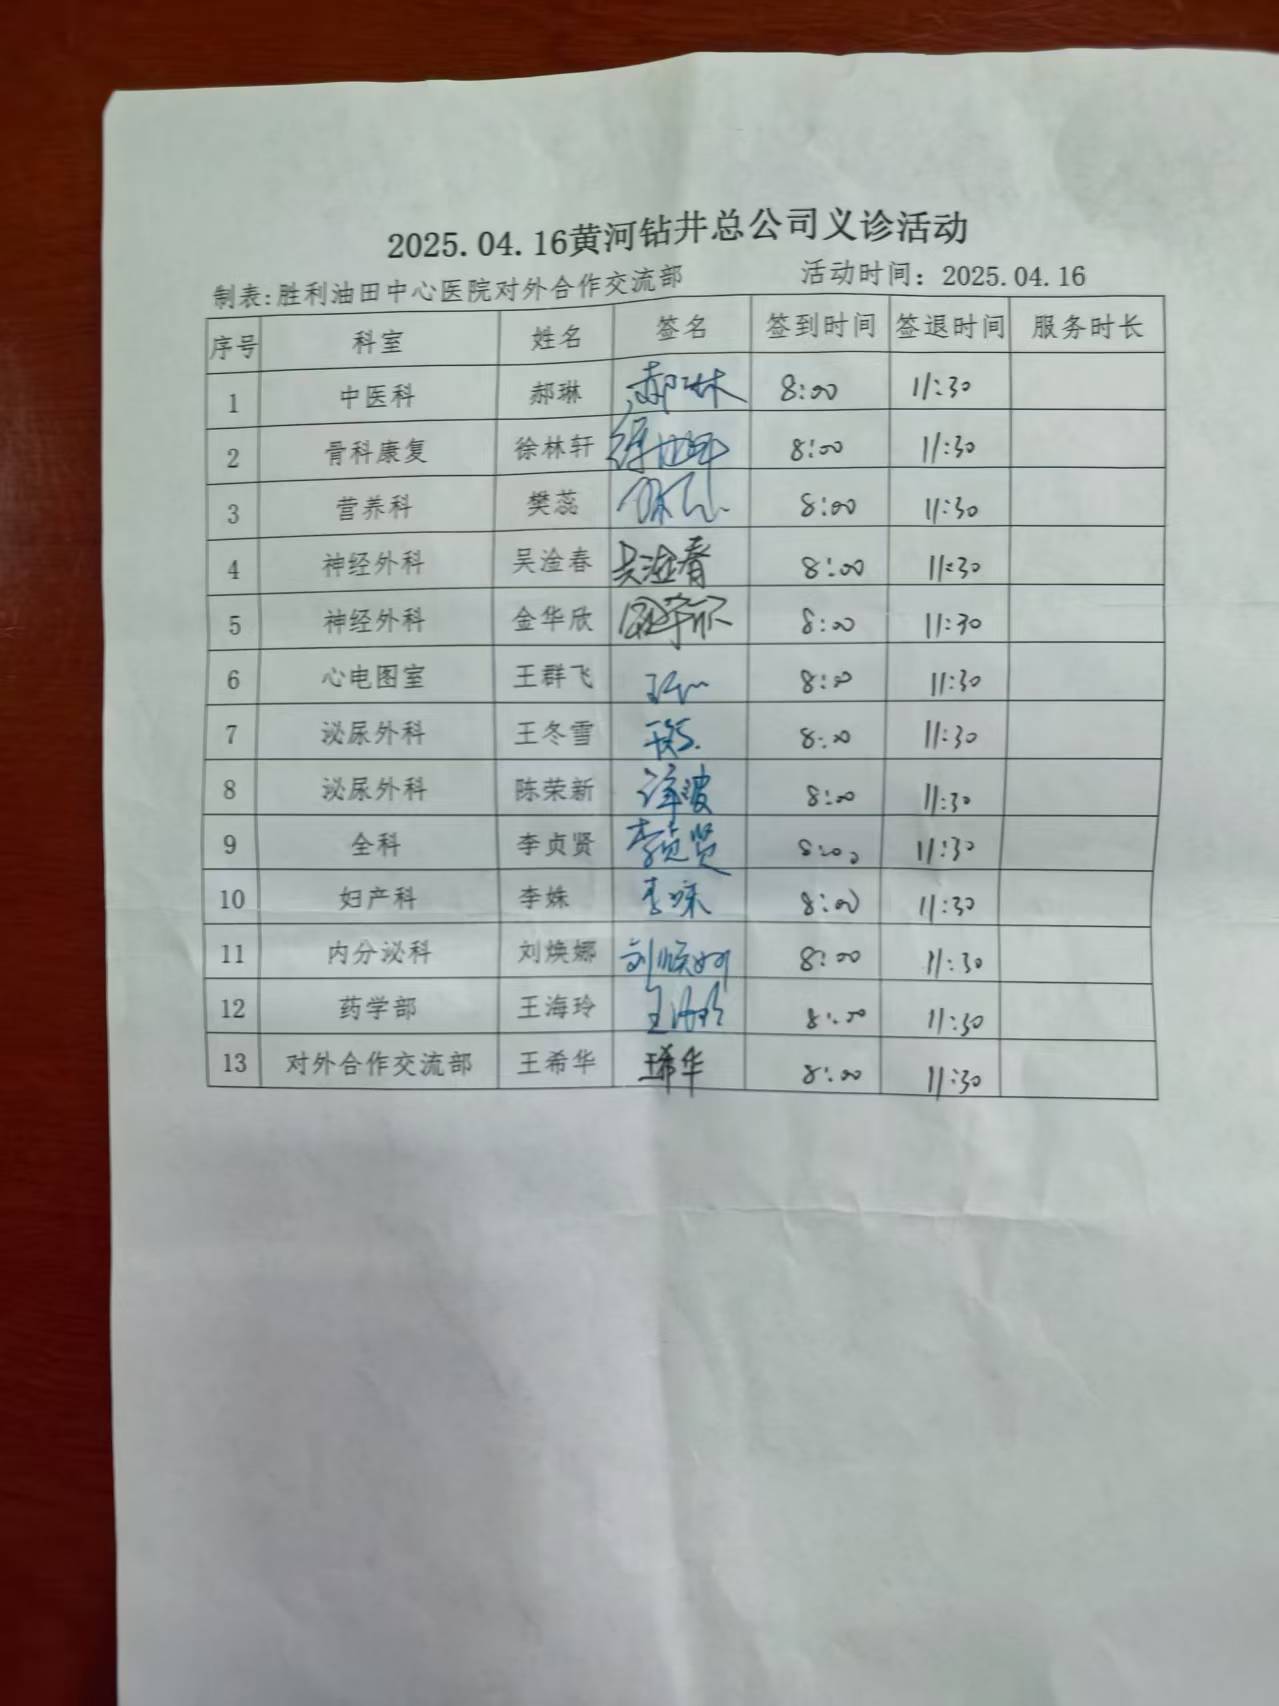 2025.04.16黄河钻井总公司义诊活动
制表:胜利油田中心医院对外合作交流部 活动时间：2025.04.16
序号 科室 姓名 签名 签到时间 签退时间 服务时长
1 中医科 郝琳 郝琳 8:00 11:30
2 骨科康复 徐林轩 8:00 11:30
3 营养科 樊蕊 8:00 11:30
4 神经外科 吴淦春 吴淦春 8:00 11:30
5 神经外科 金华欣 8:00 11:30
6 心电图室 王群飞 8:00 11:30
7 泌尿外科 王冬雪 8:00 11:30
8 泌尿外科 陈荣新 8:00 11:30
9 全科 李贞贤 李贞贤 8:00 11:30
10 妇产科 李姝 李姝 8:00 11:30
11 内分泌科 刘焕娜 刘焕娜 8:00 11:30
12 药学部 王海玲 王海玲 8:00 11:30
13 对外合作交流部 王希华 王希华 8:00 11:30